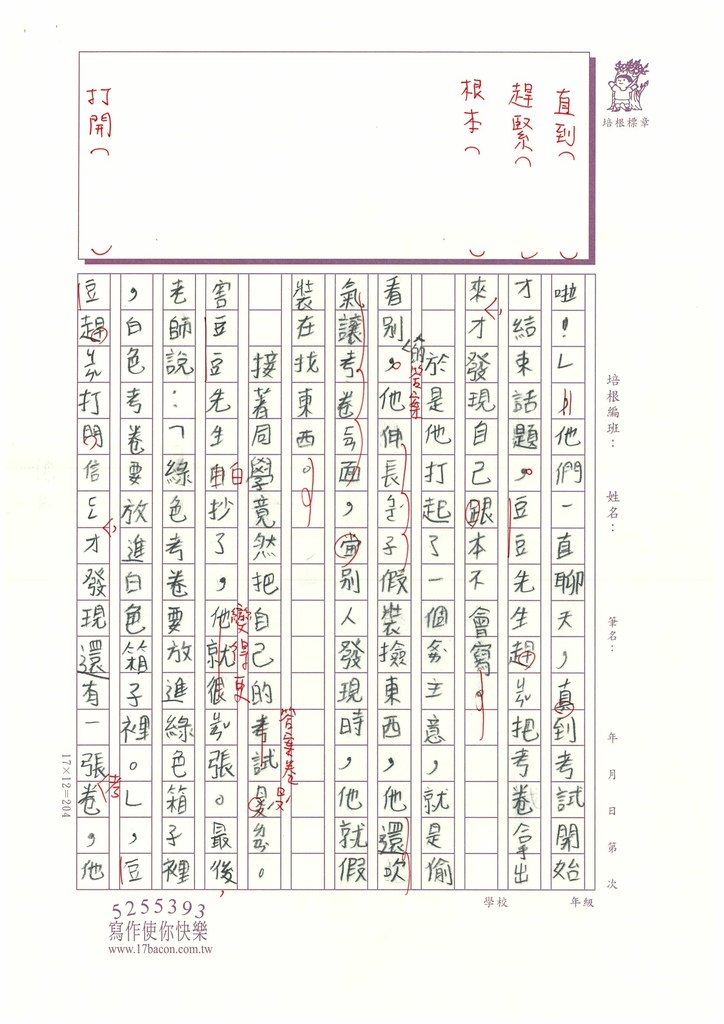 直到（ ）
趕緊（ ）
根本（ ）
打開（ ）
培根標章
培根編班：
姓名：
筆名：
年 月 日 第 次
啦！」他們一直聊天，直到考試開始
才結束話題，豆豆先生趕緊把考卷拿出
來才發現自己跟本不會寫。
於是他打起了一個主意，就是偷
看別，他伸長脖子假裝撿東西，他還吹
氣讓考卷 面，當別人發現時，他就假
裝在找東西。
接著同學竟然把自己的考試
害豆豆先生自抄了，他就很 張。最後
老師說：「綠色考卷要放進綠色箱子裡
，白色考卷要放進白色箱子裡。」，豆
豆趕 打開信 才發現還有一張卷，他
的答案
自
變得更
答案卷
考
17×12=204
學校
年級
5255393
寫作使你快樂
www.17bacon.com.tw